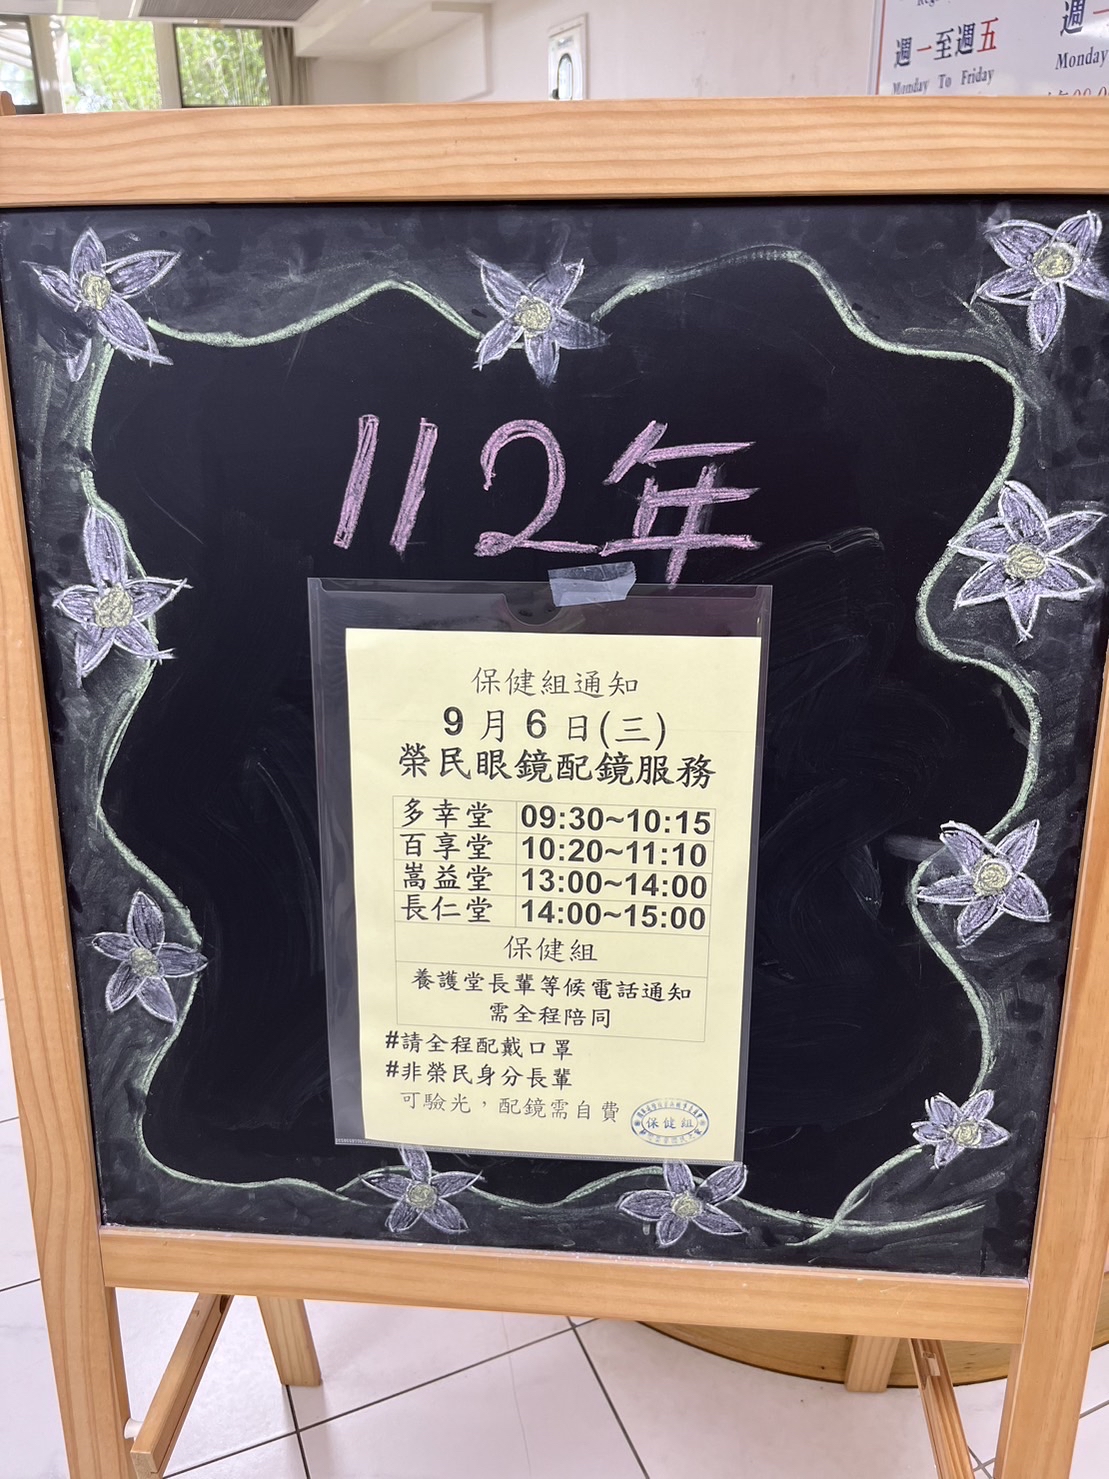 週一至週五
Monday To Friday
週一
Monday
112年
保健組通知
9月6日(三)
榮民眼鏡配鏡服務
多幸堂 09:30~10:15
百享堂 10:20~11:10
嵩益堂 13:00~14:00
長仁堂 14:00~15:00
保健組
養護堂長輩等候電話通知
需全程陪同
#請全程配戴口罩
#非榮民身分長輩
可驗光，配鏡需自費
保健組